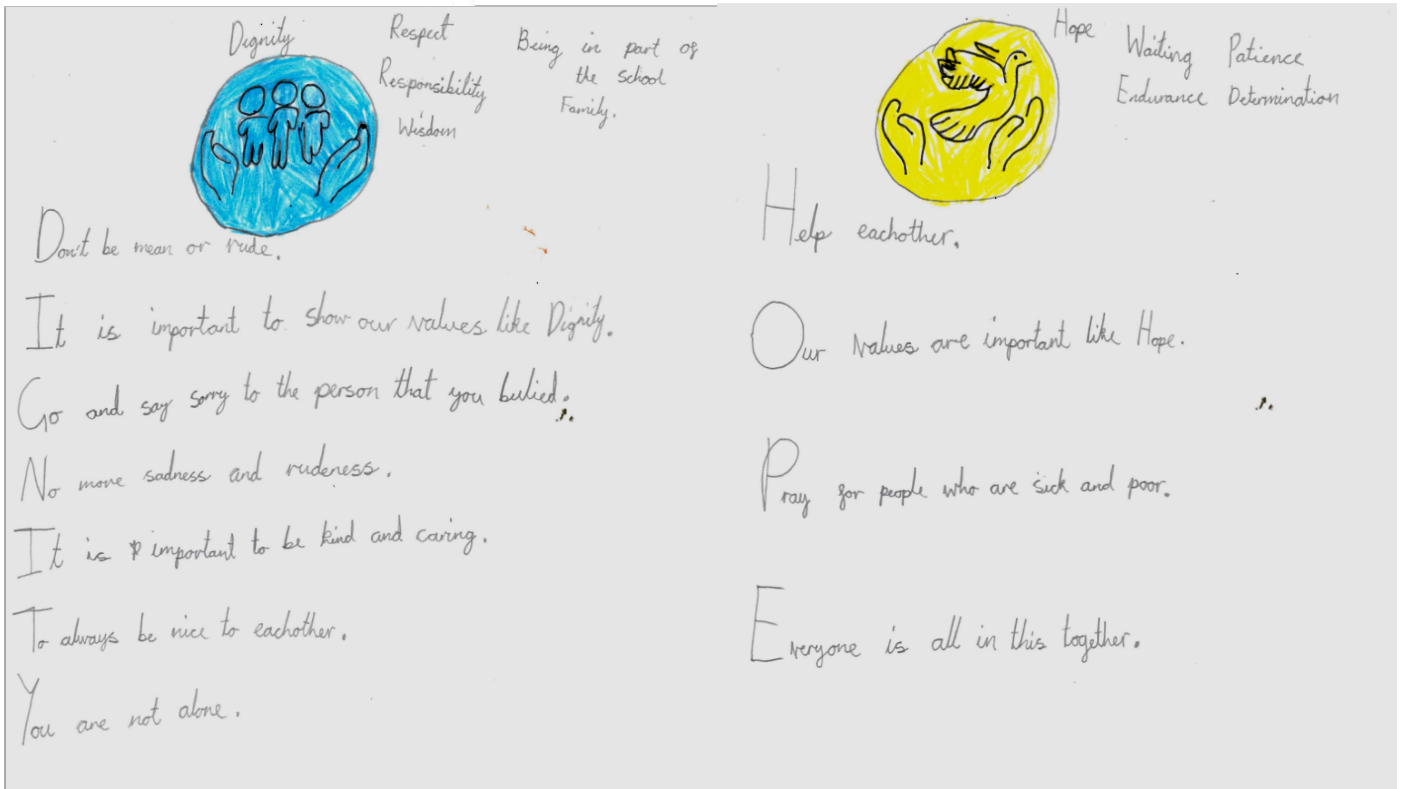 Dignity
Respect
Responsibility
Wisdom
Being in part of
the school
Family.
Don't be mean or rude.
It is important to show our values like Dignity.
Go and say sorry to the person that you bulied.
No more sadness and rudeness.
It is important to be kind and caring.
To always be nice to eachother.
You are not alone.
Hope
Waiting Patience
Endurance Determination
Help eachother.
Our values are important like Hope.
Pray for people who are sick and poor.
Everyone is all in this together.